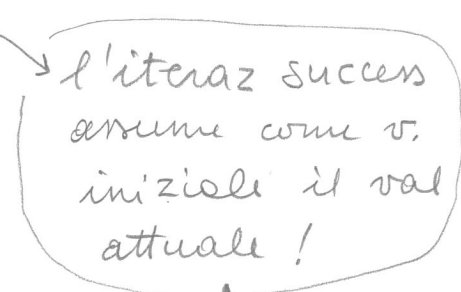 l'iteraz success
assume come v.
iniziale il val
attuale !